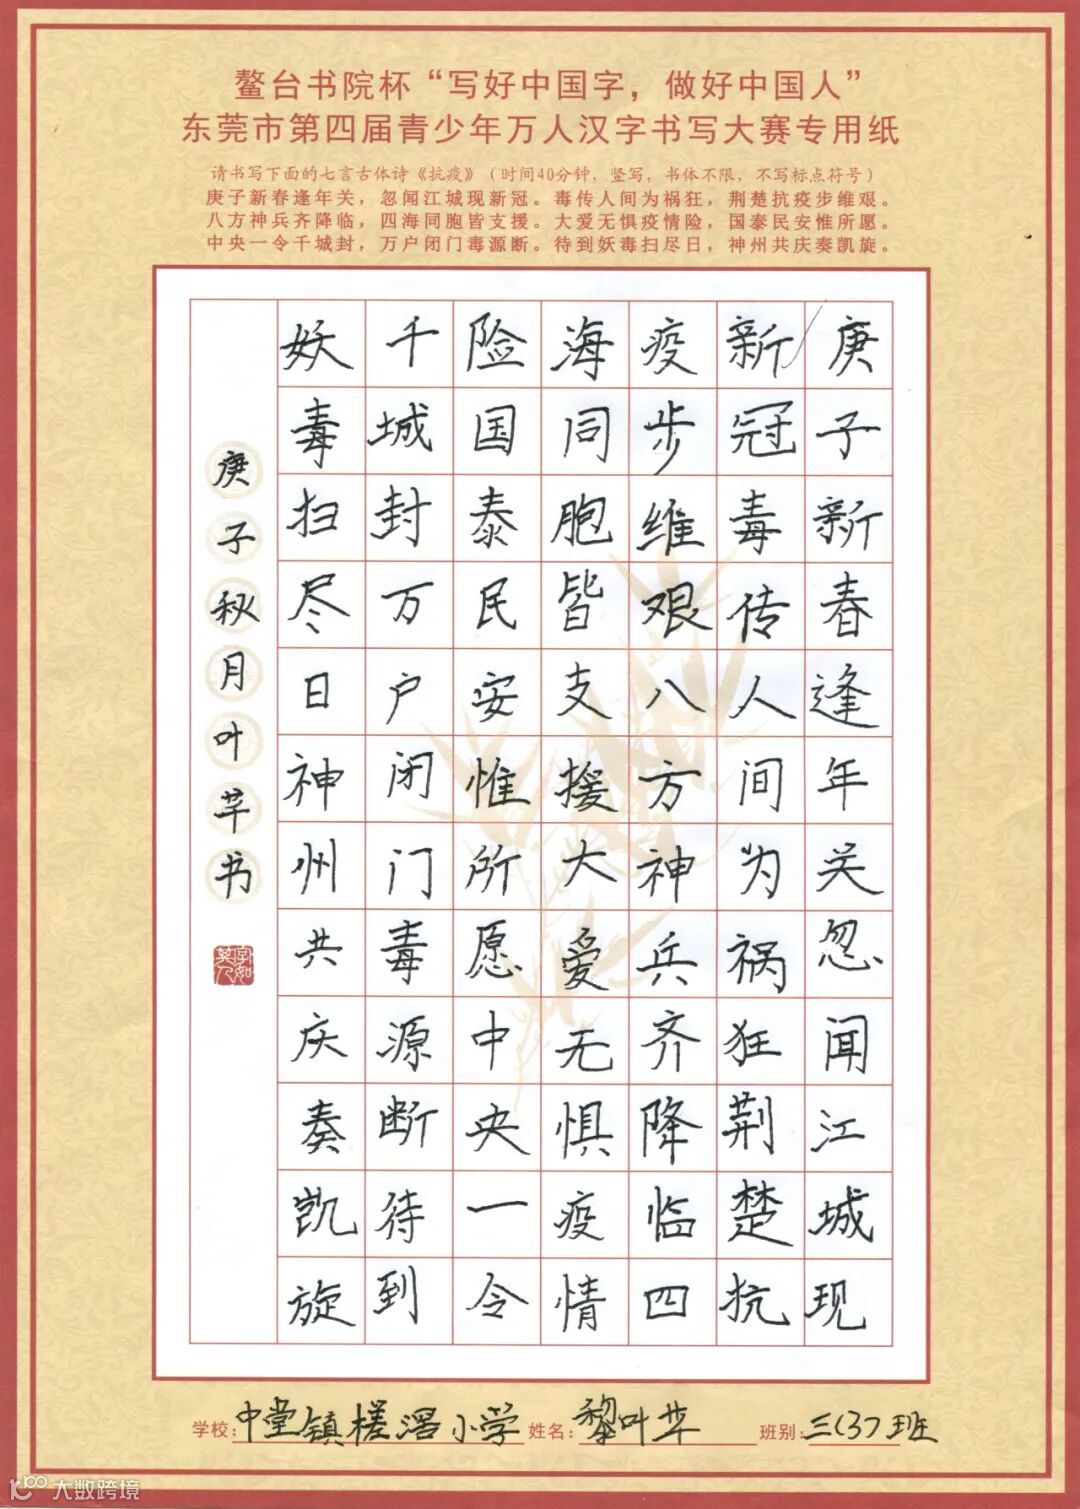 鳌台书院杯“写好中国字，做好中国人”
东莞市第四届青少年万人汉字书写大赛专用纸
请书写下面的七言古体诗《抗疫》（时间40分钟，竖写，书体不限，不写标点符号）
庚子新春逢年关，忽闻江城现新冠。毒传人间为祸狂，荆楚抗疫步维艰。
八方神兵齐降临，四海同胞皆支援。大爱无惧疫情险，国泰民安惟所愿。
中央一令千城封，万户闭门毒源断。待到妖毒扫尽日，神州共庆奏凯旋。
庚子新春逢年关忽闻江城现
新冠毒传人间为祸狂荆楚抗
疫步维艰八方神兵齐降临四
海同胞皆支援大爱无惧疫情
险国泰民安惟所愿中央一令
千城封万户闭门毒源断待到
妖毒扫尽日神州共庆奏凯旋
庚子秋月叶芊书
字如其人
学校:中堂镇槎滘小学 姓名:黎叶芊 班别:三(3)班
大数跨境